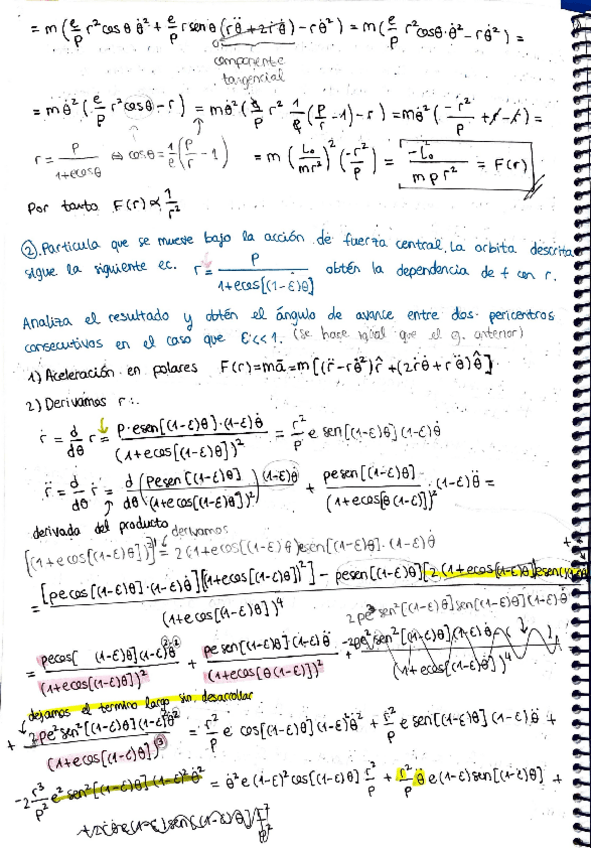 = m(e/p r² cosθ θ̇² + e/p r senθ (rθ̈ + 2ṙθ̇) - rθ̇²) = m(e/p r² cosθ·θ̇² - rθ̇²) =
componente
tangencial
= mθ̇²(e/p r² cosθ - r) = mθ̇²(e/p r² 1/e (p/r - 1) - r) = mθ̇²(-r²/p + r - r) =
r = p/(1+ecosθ) ⇔ cosθ = 1/e (p/r - 1) = m (L₀/mr²)² (-r²/p) = -L₀²/(m p r²) = F(r)
Por tanto F(r) ∝ 1/r²
②. Particula que se mueve bajo la acción de fuerza central. La orbita descrita
sigue la siguiente ec. r = p/(1+ecos[(1-ε)θ]) obtén la dependencia de f con r.
Analiza el resultado y obtén el ángulo de avance entre dos pericentros
consecutivos en el caso que ε<<1. (se hace igual que el ej. anterior)
1) Aceleración en polares F(r)=mā=m[(r̈-rθ̇²)r̂+(2ṙθ̇+rθ̈)θ̂]
2) Derivamos r:
ṙ = d/dθ r = p·esen[(1-ε)θ]·(1-ε)θ̇/(1+ecos[(1-ε)θ])² = r²/p e sen[(1-ε)θ](1-ε)θ̇
r̈ = d/dθ ṙ = d/dθ (pesen[(1-ε)θ]/(1+ecos[(1-ε)θ])²)(1-ε)θ̇ + pesen[(1-ε)θ]/(1+ecos[θ(1-ε)])² (1-ε)θ̈ =
derivada del producto derivamos
[(1+ecos[(1-ε)θ])²]' = 2(1+ecos[(1-ε)θ])esen[(1-ε)θ]·(1-ε)θ̇
= [pecos[(1-ε)θ]·(1-ε)θ̇][(1+ecos[(1-ε)θ])²] - pesen[(1-ε)θ][2(1+ecos[(1-ε)θ])esen
(1+ecos[(1-ε)θ])⁴
2pe² sen²[(1-ε)θ]sen[(1-ε)θ](1-ε)θ̇
= pecos[(1-ε)θ](1-ε)²θ̇²/(1+ecos[(1-ε)θ])² + pesen[(1-ε)θ](1-ε)θ̈/(1+ecos[θ(1-ε)])² +
dejamos el termino largo sin desarrollar
+ 2pe²sen²[(1-ε)θ](1-ε)²θ̇²/(1+ecos[(1-ε)θ])³ = r²/p e cos[(1-ε)θ](1-ε)²θ̇² + r²/p e sen[(1-ε)θ](1-ε)θ̈ +
-2 r³/p² e² sen²[(1-ε)θ](1-ε)²θ̇² = θ̇² e(1-ε)² cos[(1-ε)θ] r²/p + r²/p θ̈ e(1-ε)sen[(1-ε)θ] +